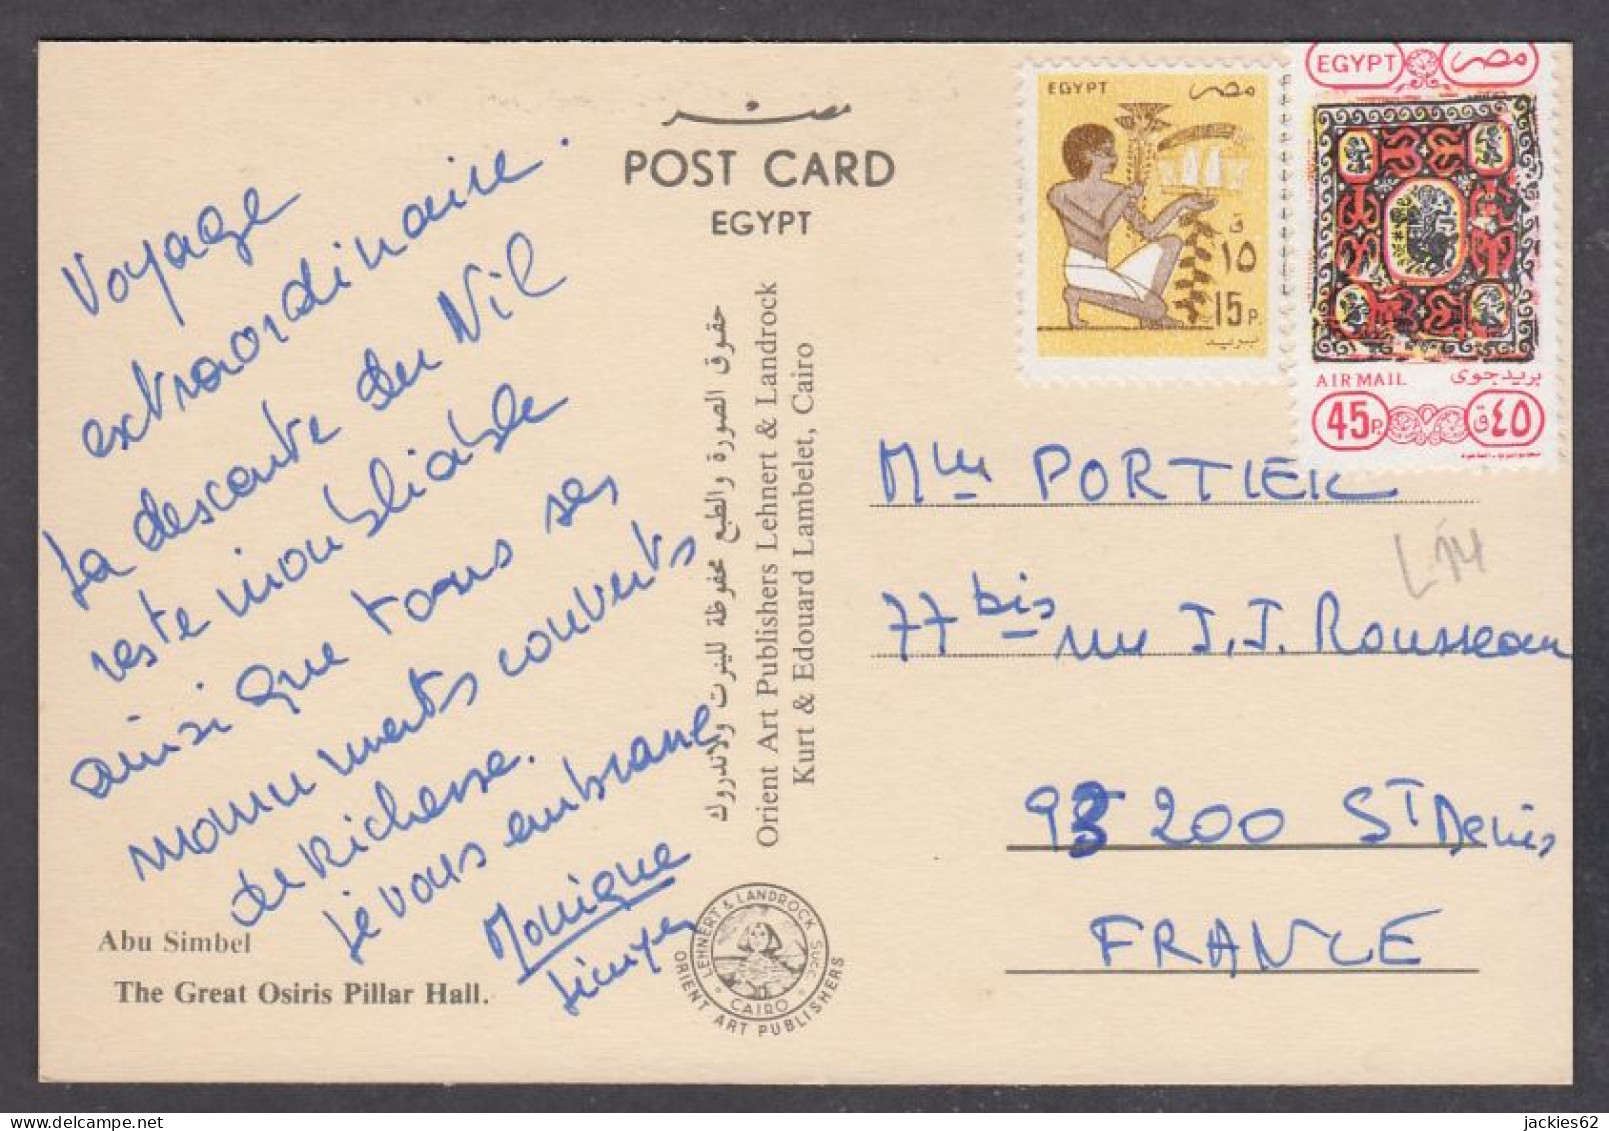 مصر
POST CARD
EGYPT
Voyage
extraordinaire.
La descente du Nil
reste inoubliable
ainsi que tous ses
monuments couverts
de Richesse.
Je vous embrasse
Monique
Abu Simbel
The Great Osiris Pillar Hall.
حقوق الصورة والطبع محفوظة للينرت ولاندروك
Orient Art Publishers Lehnert & Landrock
Kurt & Edouard Lambelet, Cairo
LEHNERT & LANDROCK SUCC.
CAIRO
ORIENT ART PUBLISHERS
EGYPT مصر
ق
١٥
15 P.
بريد
EGYPT مصر
AIR MAIL بريد جوى
45 P. ٤٥ ق
Mlle PORTIER
77 bis rue J.J. Rousseau
93200 ST Denis
FRANCE
L14
delcampe.net
jackies62